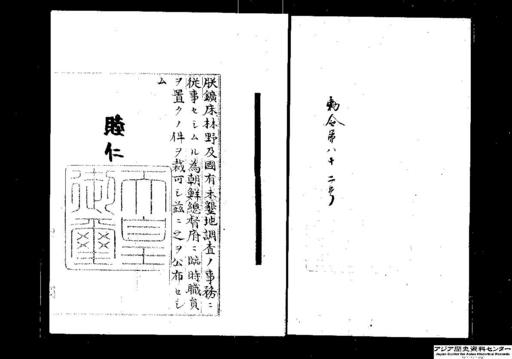 勅令第八十二号
朕鑛床林野及國有未墾地調査ノ事務ニ
從事セシムル為朝鮮總督府ニ臨時職員
ヲ置クノ件ヲ裁可シ茲ニ之ヲ公布セシ
ム
睦仁
天皇御璽
アジア歴史資料センター
Japan Center for Asian Historical Records